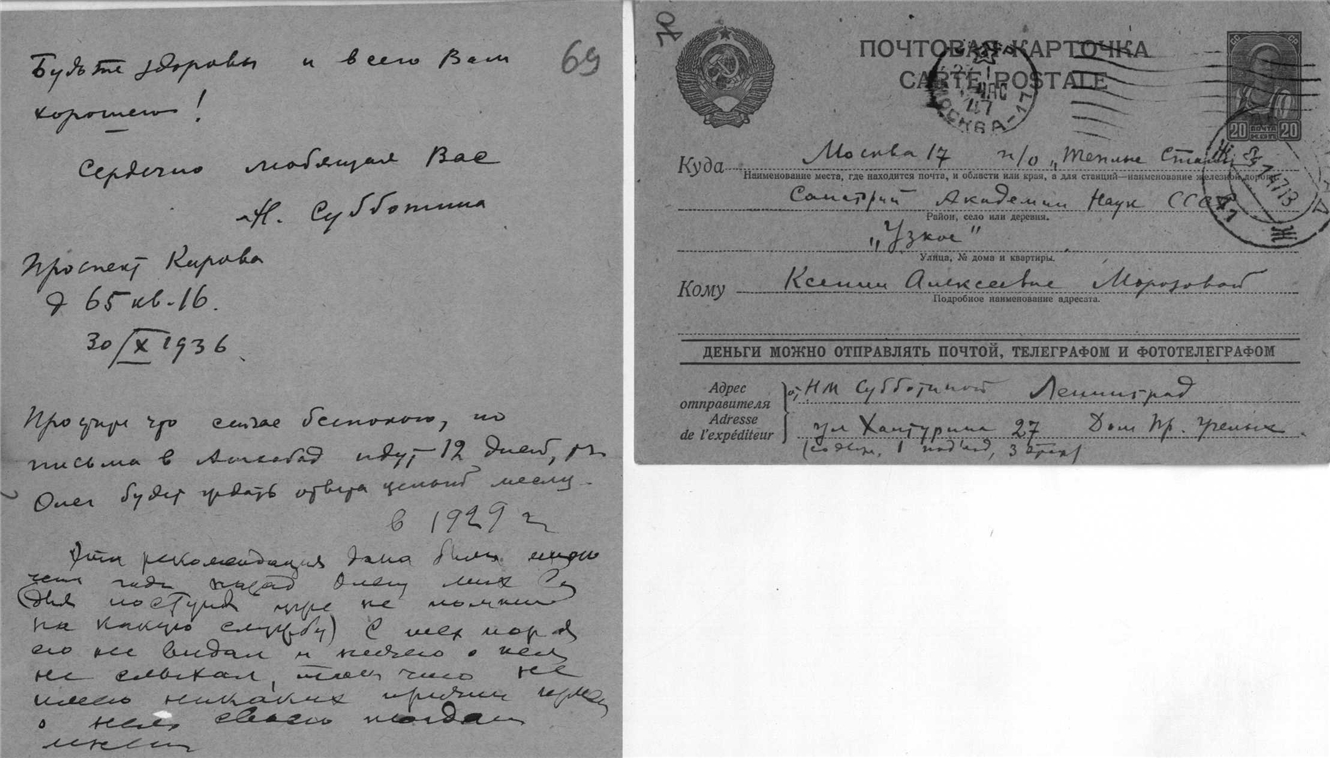 69
Будьте здоровы и всего Вам
хорошего!
Сердечно любящая Вас
Н. Субботина
Проспект Кирова
д 65 кв. 16.
30/X 1936
что сейчас беспокою, но
письма в Ашхабад идут 12 дней,
Олег будет ждать ответа целый месяц.
в 1929 г
Эта рекомендация дана была мною
назад Олегу
не помню
на какую службу) С тех пор я
его не видал и ничего о нем
не слыхал, так что не
имею никаких причин
о нем своего
70
ПОЧТОВАЯ КАРТОЧКА
CARTE POSTALE
МОСКВА-17
47
20 ПОЧТА КОП 20
Куда Москва 17 п/о „Теплые Станы"
Наименование места, где находится почта, и области или края, а для станций—наименование железной дороги.
Санаторий Академии Наук СССР
Район, село или деревня.
„Узкое"
Улица, № дома и квартиры.
Кому Ксении Алексеевне Морозовой
Подробное наименование адресата.
ДЕНЬГИ МОЖНО ОТПРАВЛЯТЬ ПОЧТОЙ, ТЕЛЕГРАФОМ И ФОТОТЕЛЕГРАФОМ
Адрес отправителя от НМ Субботиной Ленинград
Adresse de l'expéditeur ул Халтурина 27 Дом Пр. Ученых